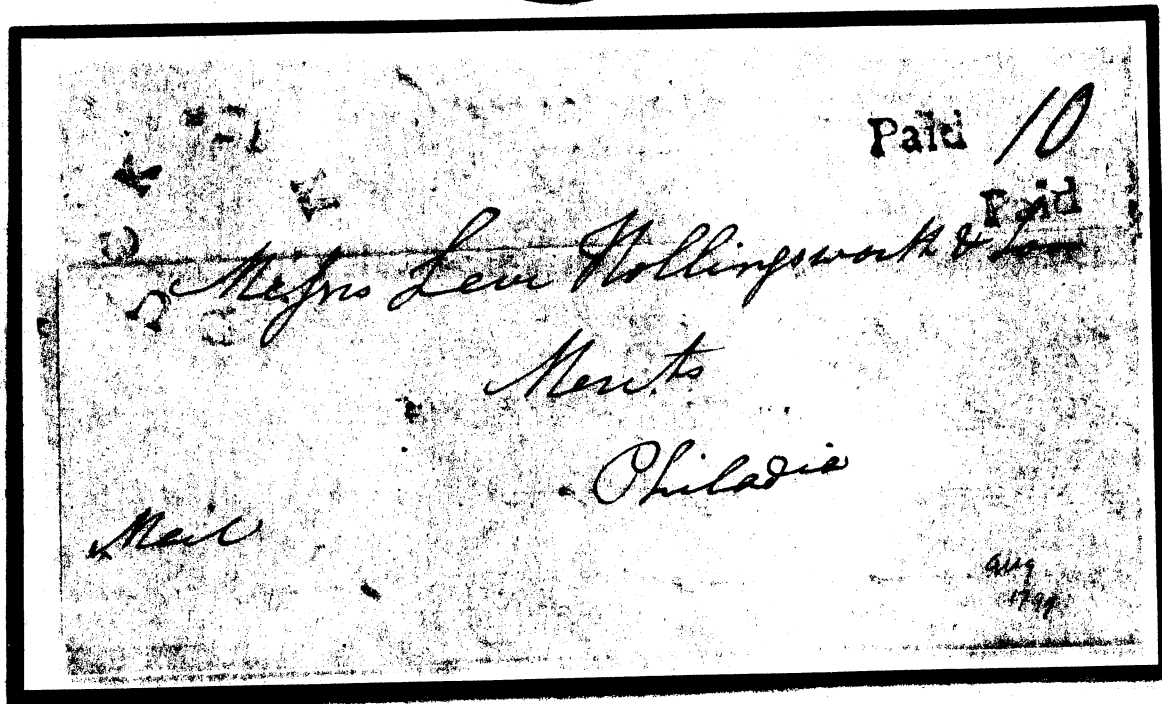 Paid 10
Paid
Messrs Levi Hollingsworth & Son
Mercts
Philadia
Mail
aug